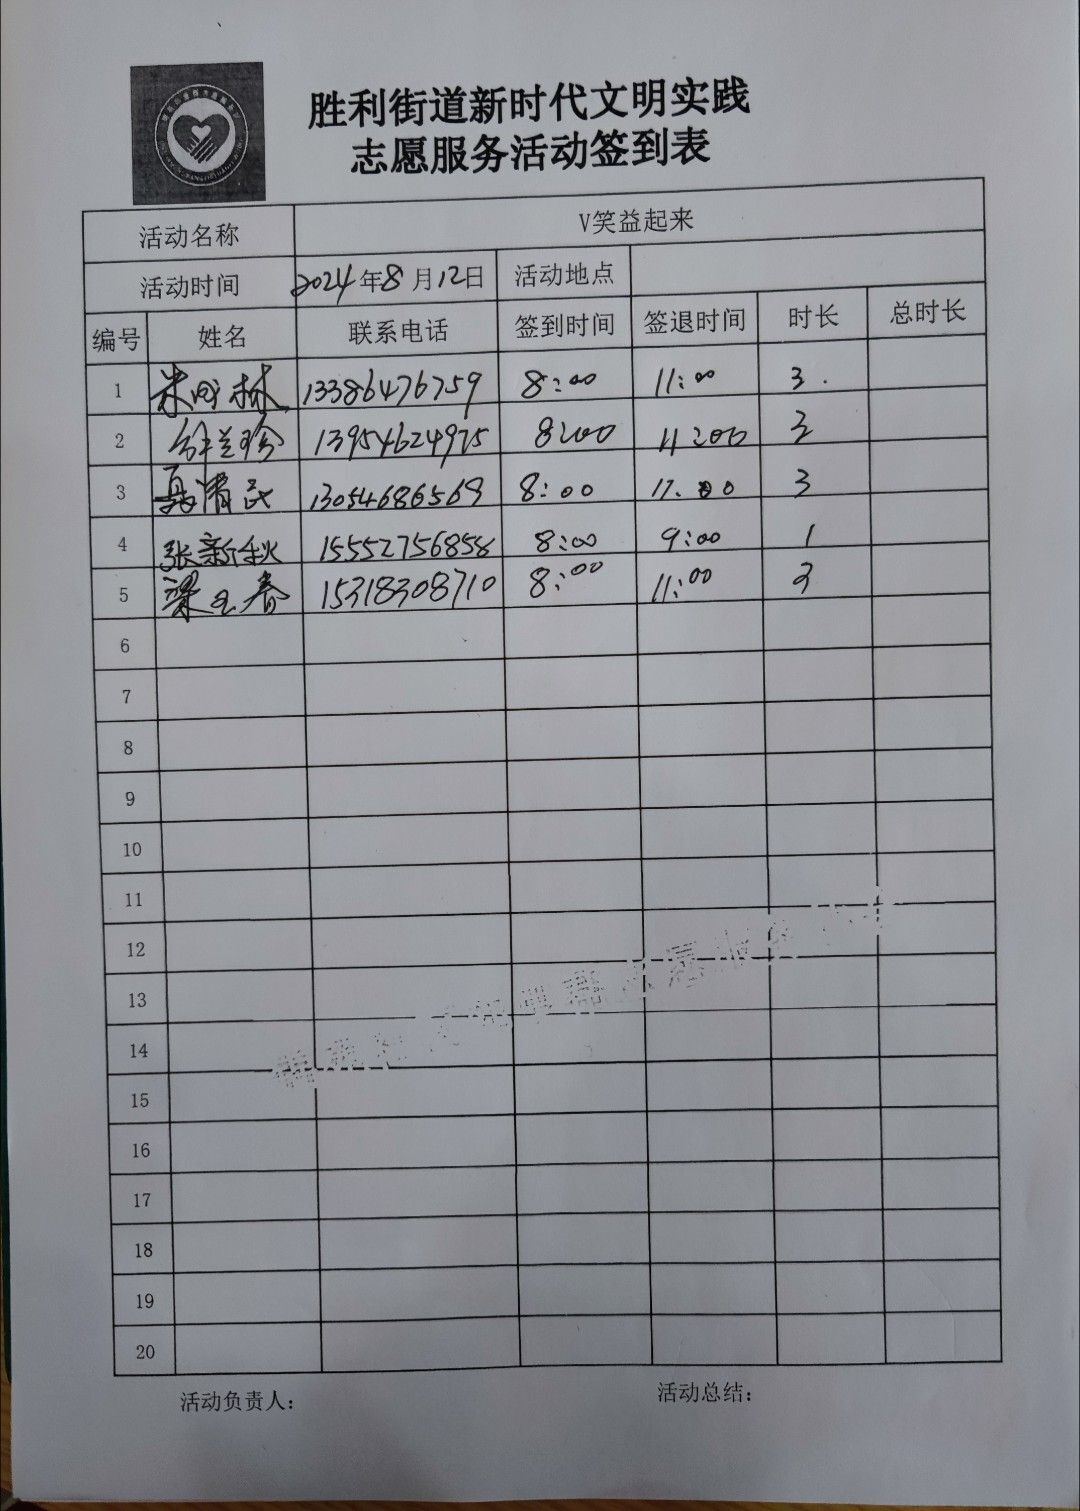 胜利街道新时代文明实践
志愿服务活动签到表
活动名称 V笑益起来
活动时间 2024年8月12日 活动地点
编号 姓名 联系电话 签到时间 签退时间 时长 总时长
1 林 13386476759 8:00 11:00 3.
2 兰珍 13954624975 8:00 11:00 3
3 清民 13054686569 8:00 11:00 3
4 张新秋 15552756858 8:00 9:00 1
5 梁玉春 15318308710 8:00 11:00 3
6
7
8
9
10
11
12
13
14
15
16
17
18
19
20
活动负责人: 活动总结: